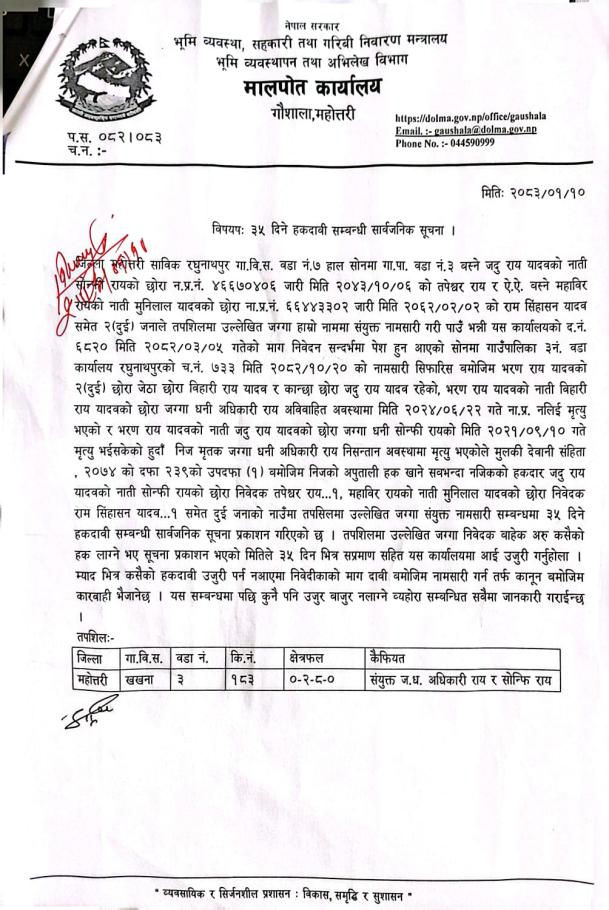 नेपाल सरकार
भूमि व्यवस्था, सहकारी तथा गरिवी निवारण मन्त्रालय
भूमि व्यवस्थापन तथा अभिलेख विभाग
मालपोत कार्यालय
गौशाला,महोत्तरी
https://dolma.gov.np/office/gaushala
Email. :- gaushala@dolma.gov.np
Phone No. :- 044590999
प.स. ०८२।०८३
च.न. :-
मितिः २०८३/०१/१०
विषयः ३५ दिने हकदावी सम्बन्धी सार्वजनिक सूचना ।
जिल्ला महोत्तरी साविक रघुनाथपुर गा.वि.स. वडा नं.७ हाल सोनमा गा.पा. वडा नं.३ बस्ने जदु राय यादवको नाती
सोन्फी रायको छोरा न.प्र.नं. ४६६७०४०६ जारी मिति २०४३/१०/०६ को तपेश्वर राय र ऐ.ऐ. वस्ने महाविर
रायको नाती मुनिलाल यादवको छोरा ना.प्र.नं. ६६४४३३०२ जारी मिति २०६२/०२/०२ को राम सिंहासन यादव
समेत २(दुई) जनाले तपशिलमा उल्लेखित जग्गा हाम्रो नाममा संयुक्त नामसारी गरी पाउँ भन्नी यस कार्यालयको द.नं.
६८२० मिति २०८२/०३/०५ गतेको माग निवेदन सन्दर्भमा पेश हुन आएको सोनमा गाउँपालिका ३नं. वडा
कार्यालय रघुनाथपुरको च.नं. ७३३ मिति २०८२/१०/२० को नामसारी सिफारिस बमोजिम भरण राय यादवको
२(दुई) छोरा जेठा छोरा विहारी राय यादव र कान्छा छोरा जदु राय यादव रहेको, भरण राय यादवको नाती विहारी
राय यादवको छोरा जग्गा धनी अधिकारी राय अविवाहित अवस्थामा मिति २०२४/०६/२२ गते ना.प्र. नलिई मृत्यु
भएको र भरण राय यादवको नाती जदु राय यादवको छोरा जग्गा धनी सोन्फी रायको मिति २०२१/०९/१० गते
मृत्यु भईसकेको हुदाँ निज मृतक जग्गा धनी अधिकारी राय निसन्तान अवस्थामा मृत्यु भएकोले मुलकी देवानी संहिता
, २०७४ को दफा २३९को उपदफा (१) बमोजिम निजको अपुताली हक खाने सवभन्दा नजिकको हकदार जदु राय
यादवको नाती सोन्फी रायको छोरा निवेदक तपेश्वर राय...१, महाविर रायको नाती मुनिलाल यादवको छोरा निवेदक
राम सिंहासन यादव...१ समेत दुई जनाको नाउँमा तपसिलमा उल्लेखित जग्गा संयुक्त नामसारी सम्बन्धमा ३५ दिने
हकदावी सम्बन्धी सार्वजनिक सूचना प्रकाशन गरिएको छ । तपशिलमा उल्लेखित जग्गा निवेदक वाहेक अरु कसैको
हक लाग्ने भए सूचना प्रकाशन भएको मितिले ३५ दिन भित्र सप्रमाण सहित यस कार्यालयमा आई उजुरी गर्नुहोला ।
म्याद भित्र कसैको हकदावी उजुरी पर्न नआएमा निवेदीकाको माग दावी बमोजिम नामसारी गर्न तर्फ कानून बमोजिम
कारबाही भैजानेछ । यस सम्बन्धमा पछि कुनै पनि उजुर वाजुर नलाग्ने व्यहोरा सम्बन्धित सवैमा जानकारी गराईन्छ
।
तपशिलः-
जिल्ला गा.वि.स. वडा नं. कि.नं. क्षेत्रफल कैफियत
महोत्तरी खखना ३ १८३ ०-२-८-० संयुक्त ज.ध. अधिकारी राय र सोन्फि राय
" व्यवसायिक र सिर्जनशील प्रशासन : विकास, समृद्धि र सुशासन "